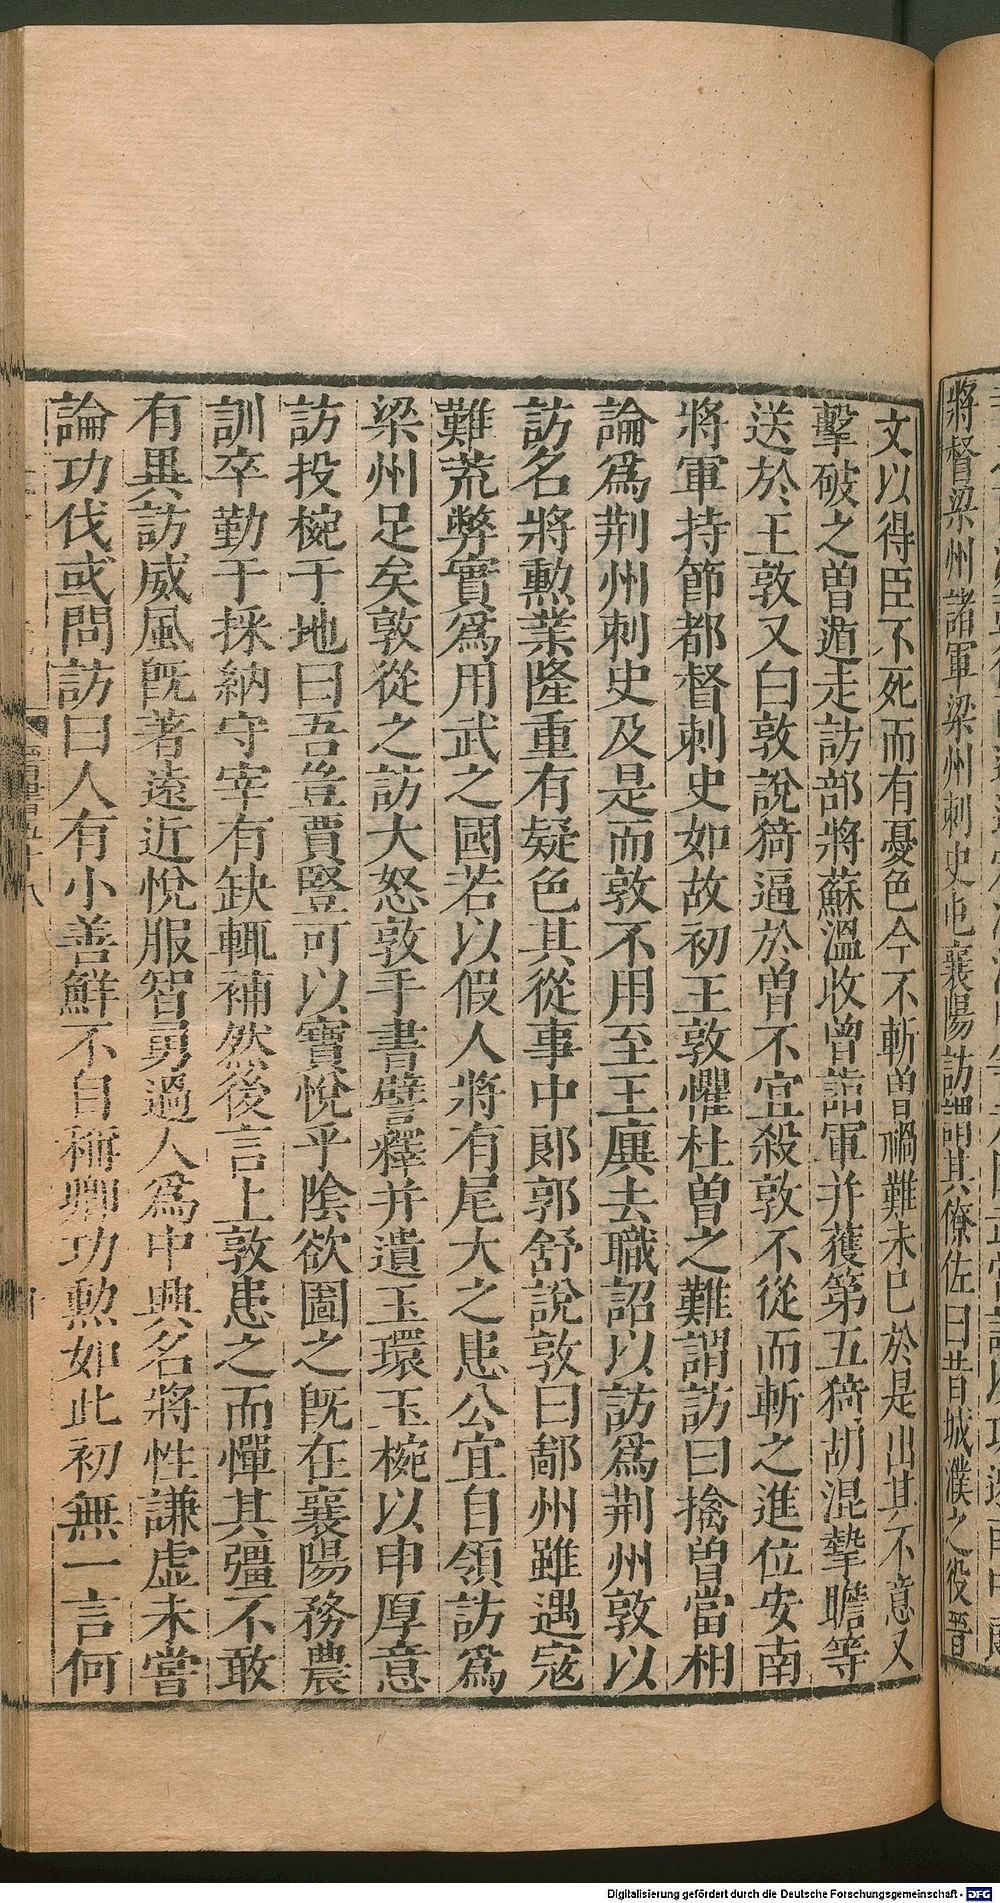 將督梁州諸軍梁州刺史屯襄陽訪謂其僚佐曰昔城濮之役晉
文以得臣不死而有憂色今不斬曾禍難未已於是出其不意又
擊破之曾遁走訪部將蘇溫收曾詣軍并獲第五猗胡混摯瞻等
送於王敦又白敦說猗逼於曾不宜殺敦不從而斬之進位安南
將軍持節都督刺史如故初王敦懼杜曾之難謂訪曰擒曾當相
論爲荆州刺史及是而敦不用至王廙去職詔以訪爲荆州敦以
訪名將勲業隆重有疑色其從事中郎郭舒說敦曰鄙州雖遇寇
難荒弊實爲用武之國若以假人將有尾大之患公宜自領訪爲
梁州足矣敦從之訪大怒敦手書譬釋并遺玉環玉椀以申厚意
訪投椀于地曰吾豈賈豎可以寶悅乎陰欲圖之旣在襄陽務農
訓卒勤于採納守宰有缺輒補然後言上敦患之而憚其彊不敢
有異訪威風旣著遠近悅服智勇過人爲中興名將性謙虛未嘗
論功伐或問訪曰人有小善鮮不自稱卿功勲如此初無一言何
Digitalisierung gefördert durch die Deutsche Forschungsgemeinschaft - DFG